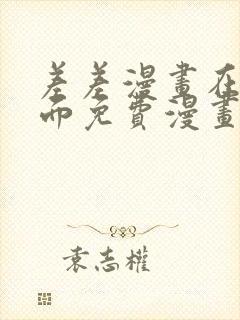 差差漫畫在
面免費漫畫
袁志權